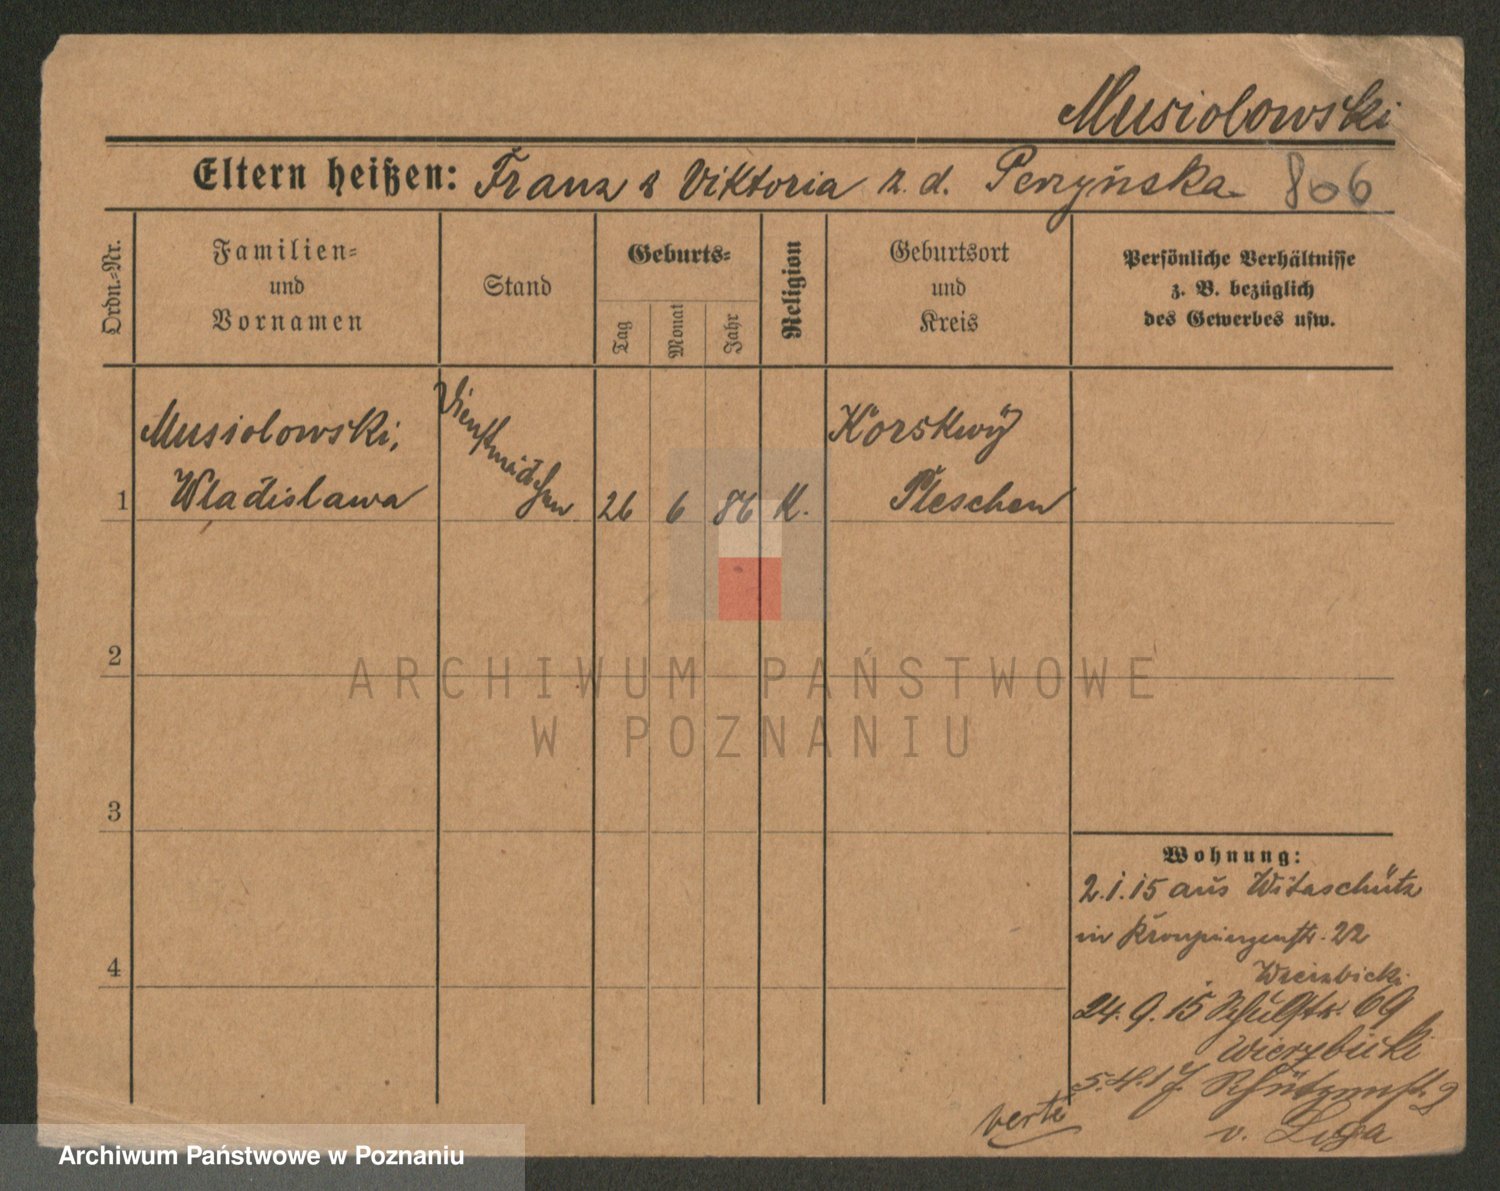 Musiolowski
Eltern heißen: Franz & Viktoria z. d. Perzyńska 806
Ordn.-Nr.
Familien-
und
Vornamen
Stand
Geburts-
Tag
Monat
Jahr
Religion
Geburtsort
und
Kreis
Persönliche Verhältnisse
z. B. bezüglich
des Gewerbes usw.
Musiolowski,
Dienstmädchen
Korskwÿ
1 Wladislawa 26 6 86 K. Pleschen
2
3
4
Wohnung:
2.1.15 aus Witaschütz
in Kronprinzenstr. 22
Wierzbicki
24.9.15 Schulstr. 69
Wierzbicki
5.4.17 Schützenstr. 9
v.
verte
ARCHIWUM PAŃSTWOWE
W POZNANIU
Archiwum Państwowe w Poznaniu